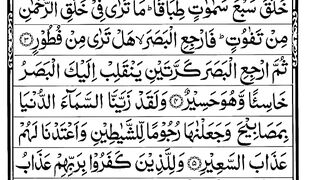 خَلَقَ سَبْعَ سَمٰوٰتٍ طِبَاقًا ؕ مَا تَرٰى فِيْ خَلْقِ الرَّحْمٰنِ
مِنْ تَفٰوُتٍ ؕ فَارْجِعِ الْبَصَرَ ۙ هَلْ تَرٰى مِنْ فُطُوْرٍ ۝۳
ثُمَّ ارْجِعِ الْبَصَرَ كَرَّتَيْنِ يَنْقَلِبْ اِلَيْكَ الْبَصَرُ
خَاسِئًا وَّهُوَ حَسِيْرٌ ۝۴ وَلَقَدْ زَيَّنَّا السَّمَآءَ الدُّنْيَا
بِمَصَابِيْحَ وَجَعَلْنٰهَا رُجُوْمًا لِّلشَّيٰطِيْنِ وَاَعْتَدْنَا لَهُمْ
عَذَابَ السَّعِيْرِ ۝۵ وَلِلَّذِيْنَ كَفَرُوْا بِرَبِّهِمْ عَذَابُ